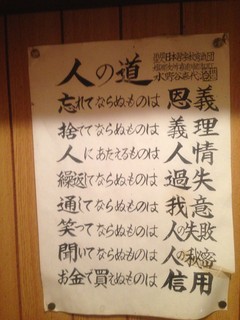 人の道
忘れてならぬものは 恩義
捨ててならぬものは 義理
人にあたえるものは 人情
繰返してならぬものは 過失
通してならぬものは 我意
笑ってならぬものは 人の失敗
聞いてならぬものは 人の秘密
お金で買えぬものは 信用